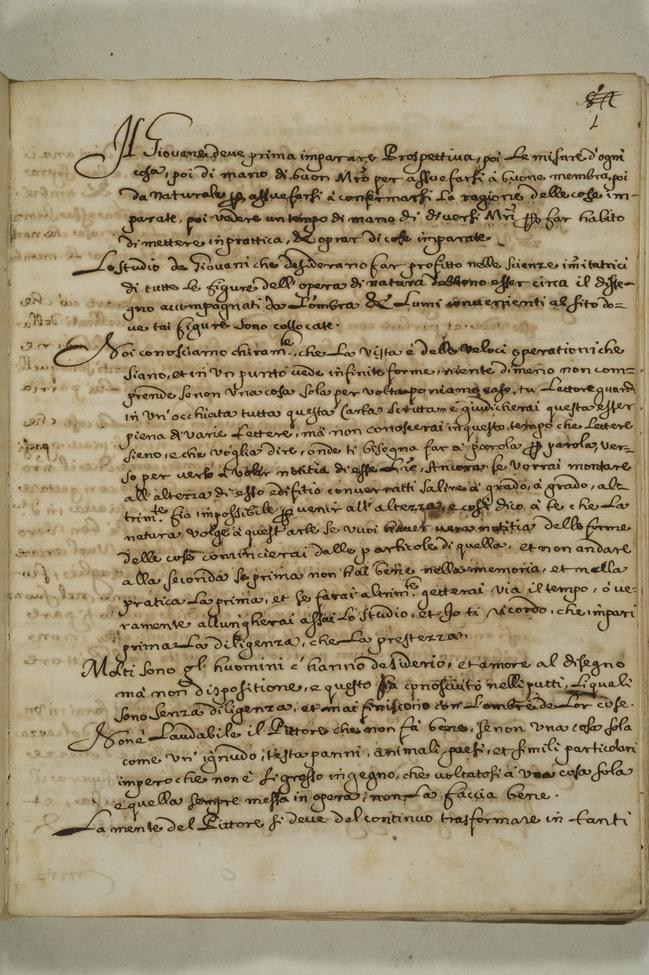 1
Il Giovane deve prima imparare Prospettiva, poi le misure d'ogni
cosa, poi di mano di buon Mro per assuefarsi à buone membra, poi
da naturale p assuefarsi à confermarsi la ragione delle cose im-
parate, poi vedere un tempo di mano di diversi Mri p far habito
di mettere in prattica, & oprar di cose imparate.
Lo studio de Giovani che desiderano far profitto nelle scienze imitatrici
di tutte le figure dell'opera di natura debbono esser circa il disse-
gno accompagnati da l'ombra & lumi convenienti al sito do-
ve tai figure sono collocate.
Noi conosciamo chiaram.te, che la vista è delle veloci operationi che
siano, et in un punto vede infinite forme, niente dimeno non com-
prende se non una cosa sola per volta poniamo caso, tu Lettore guardi
in un' occhiata tutta questa Carta scritta, e giudicherai questa esser
piena di varie lettere, mà non conoscerai in questo tempo che lettere
sieno, e che voglia dire, onde ti bisogna far à parola p parola, ver-
so per verso à voler notitia di esse L.re, Ancora se vorrai montare
all'altezza di esso edifitio converratti salire à grado, à grado, al-
trim.te fia impossibile p venir all'altezza, e così dico à te, che la
natura volge à quest'arte se vuoi haver vera notitia delle forme
delle cose comincierai dalle particole di quella, et non andare
alla seconda se prima non hai bene nella memoria, et nella
pratica la prima, et se farai altrim.te getterai via il tempo, ò ve-
ramente allungherai assai lo studio, et Io ti ricordo, che impari
prima la diligenza, che la prestezza.
Molti sono gl' huomini c'hanno desiderio, et amore al disegno
mà non dispositione, e questo fia conosciuto nelli putti, li quali
sono senza diligenza, et mai finiscono con l'ombre le lor cose.
Non è laudabile il Pittore che non fà bene, se non una cosa sola
come un' ignudo, testa panni, animali, paesi, et simili particolari
impero che non è sì grosso ingegno, che voltatosi à una cosa sola
e quella sempre messa in opera, non la faccia bene.
La mente del Pittore si deve del continuo trasformare in tanti